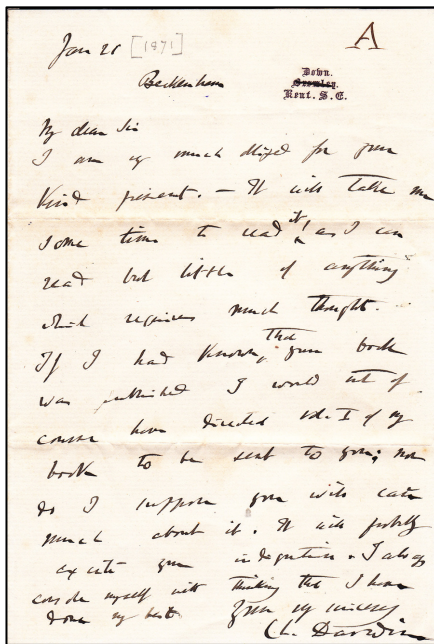 Jan 28 [1871]
A
Down.
Bromley.
Kent. S.E.
Beckenham
My dear Sir
I am very much obliged for your
kind present. — It will take me
some time to read it, as I can
read but little of anything
which requires much thought.
If I had known, that your book
was published I would not of
course have directed vol. I of my
book to be sent to you; nor
do I suppose you will care
much about it. It will probably
excite your indignation. I always
console myself with thinking that I have
done my best
Yours very sincerely
Ch. Darwin